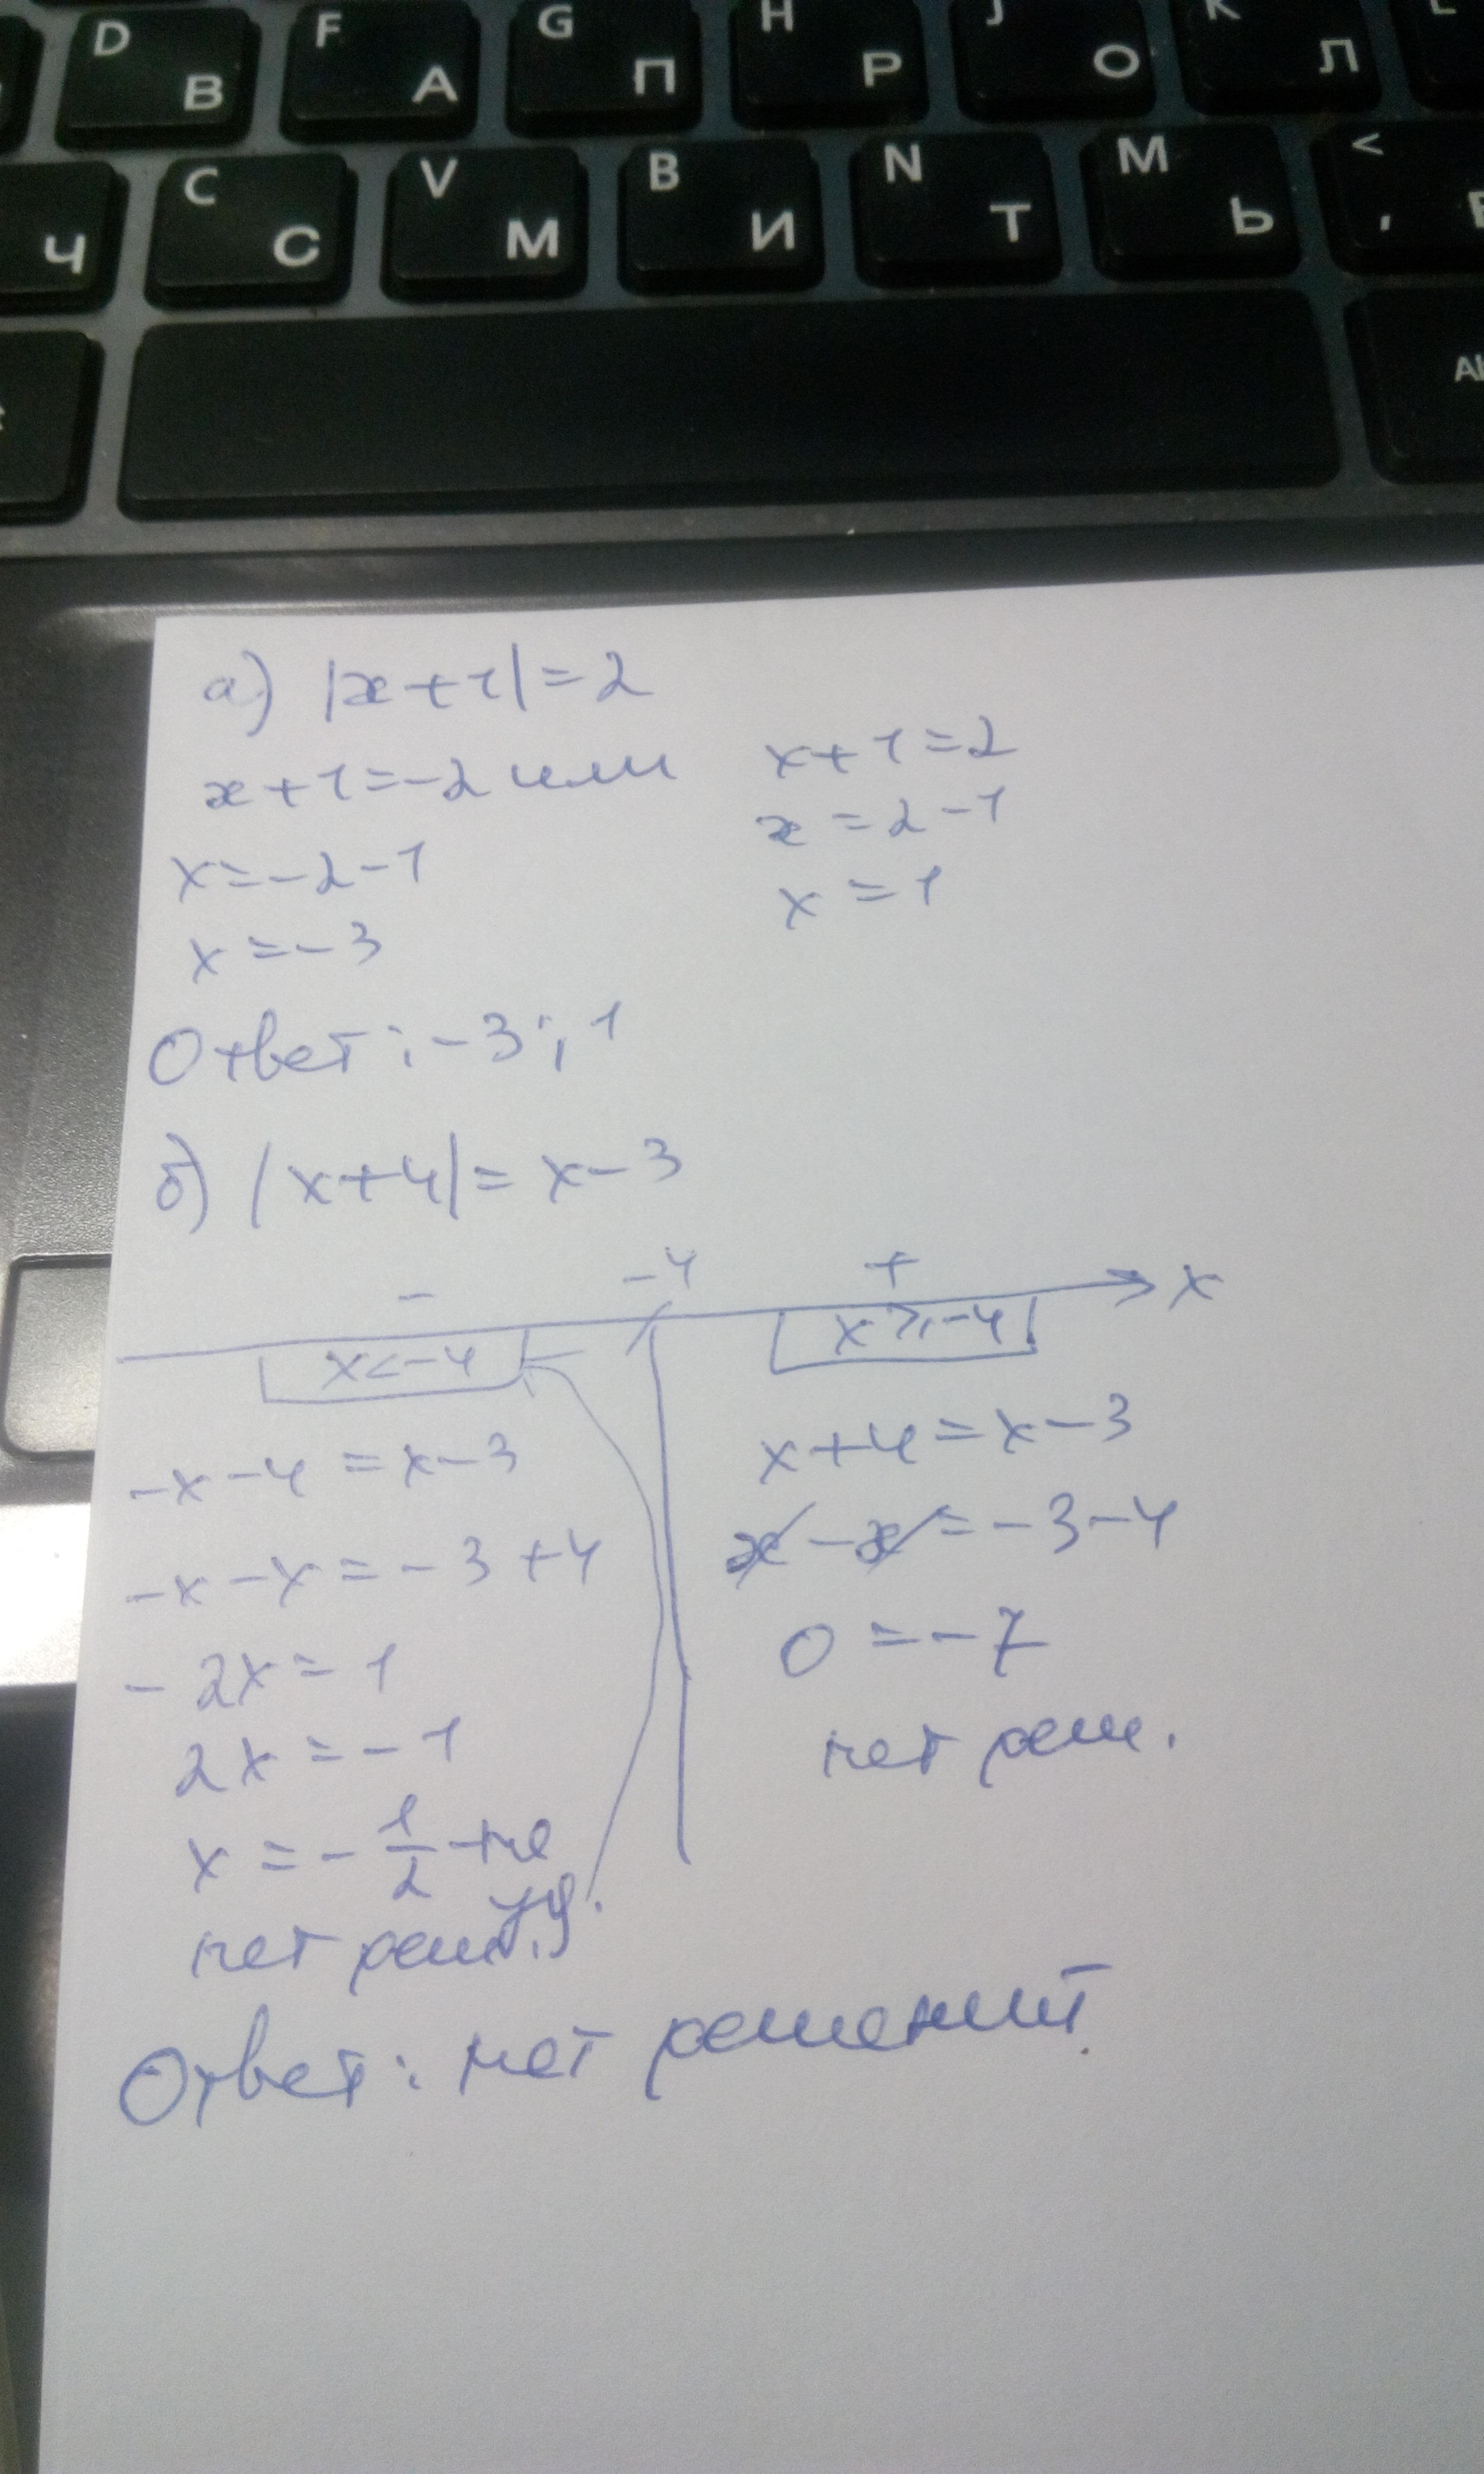 D В F А G П H Р J О K Л
Ч C С V М B И N Т M Ь < ,
а) |x+1|=2
x+1=-2 или x+1=2
x=-2-1 x=2-1
x=-3 x=1
Ответ: -3; 1
б) |x+4|=x-3
- -4 + x
x<-4 x⩾-4
-x-4=x-3 x+4=x-3
-x-x=-3+4 x-x=-3-4
-2x=1 0=-7
2x=-1 нет реш.
x=-1/2 -не
уд.
нет реш.
Ответ: нет решений